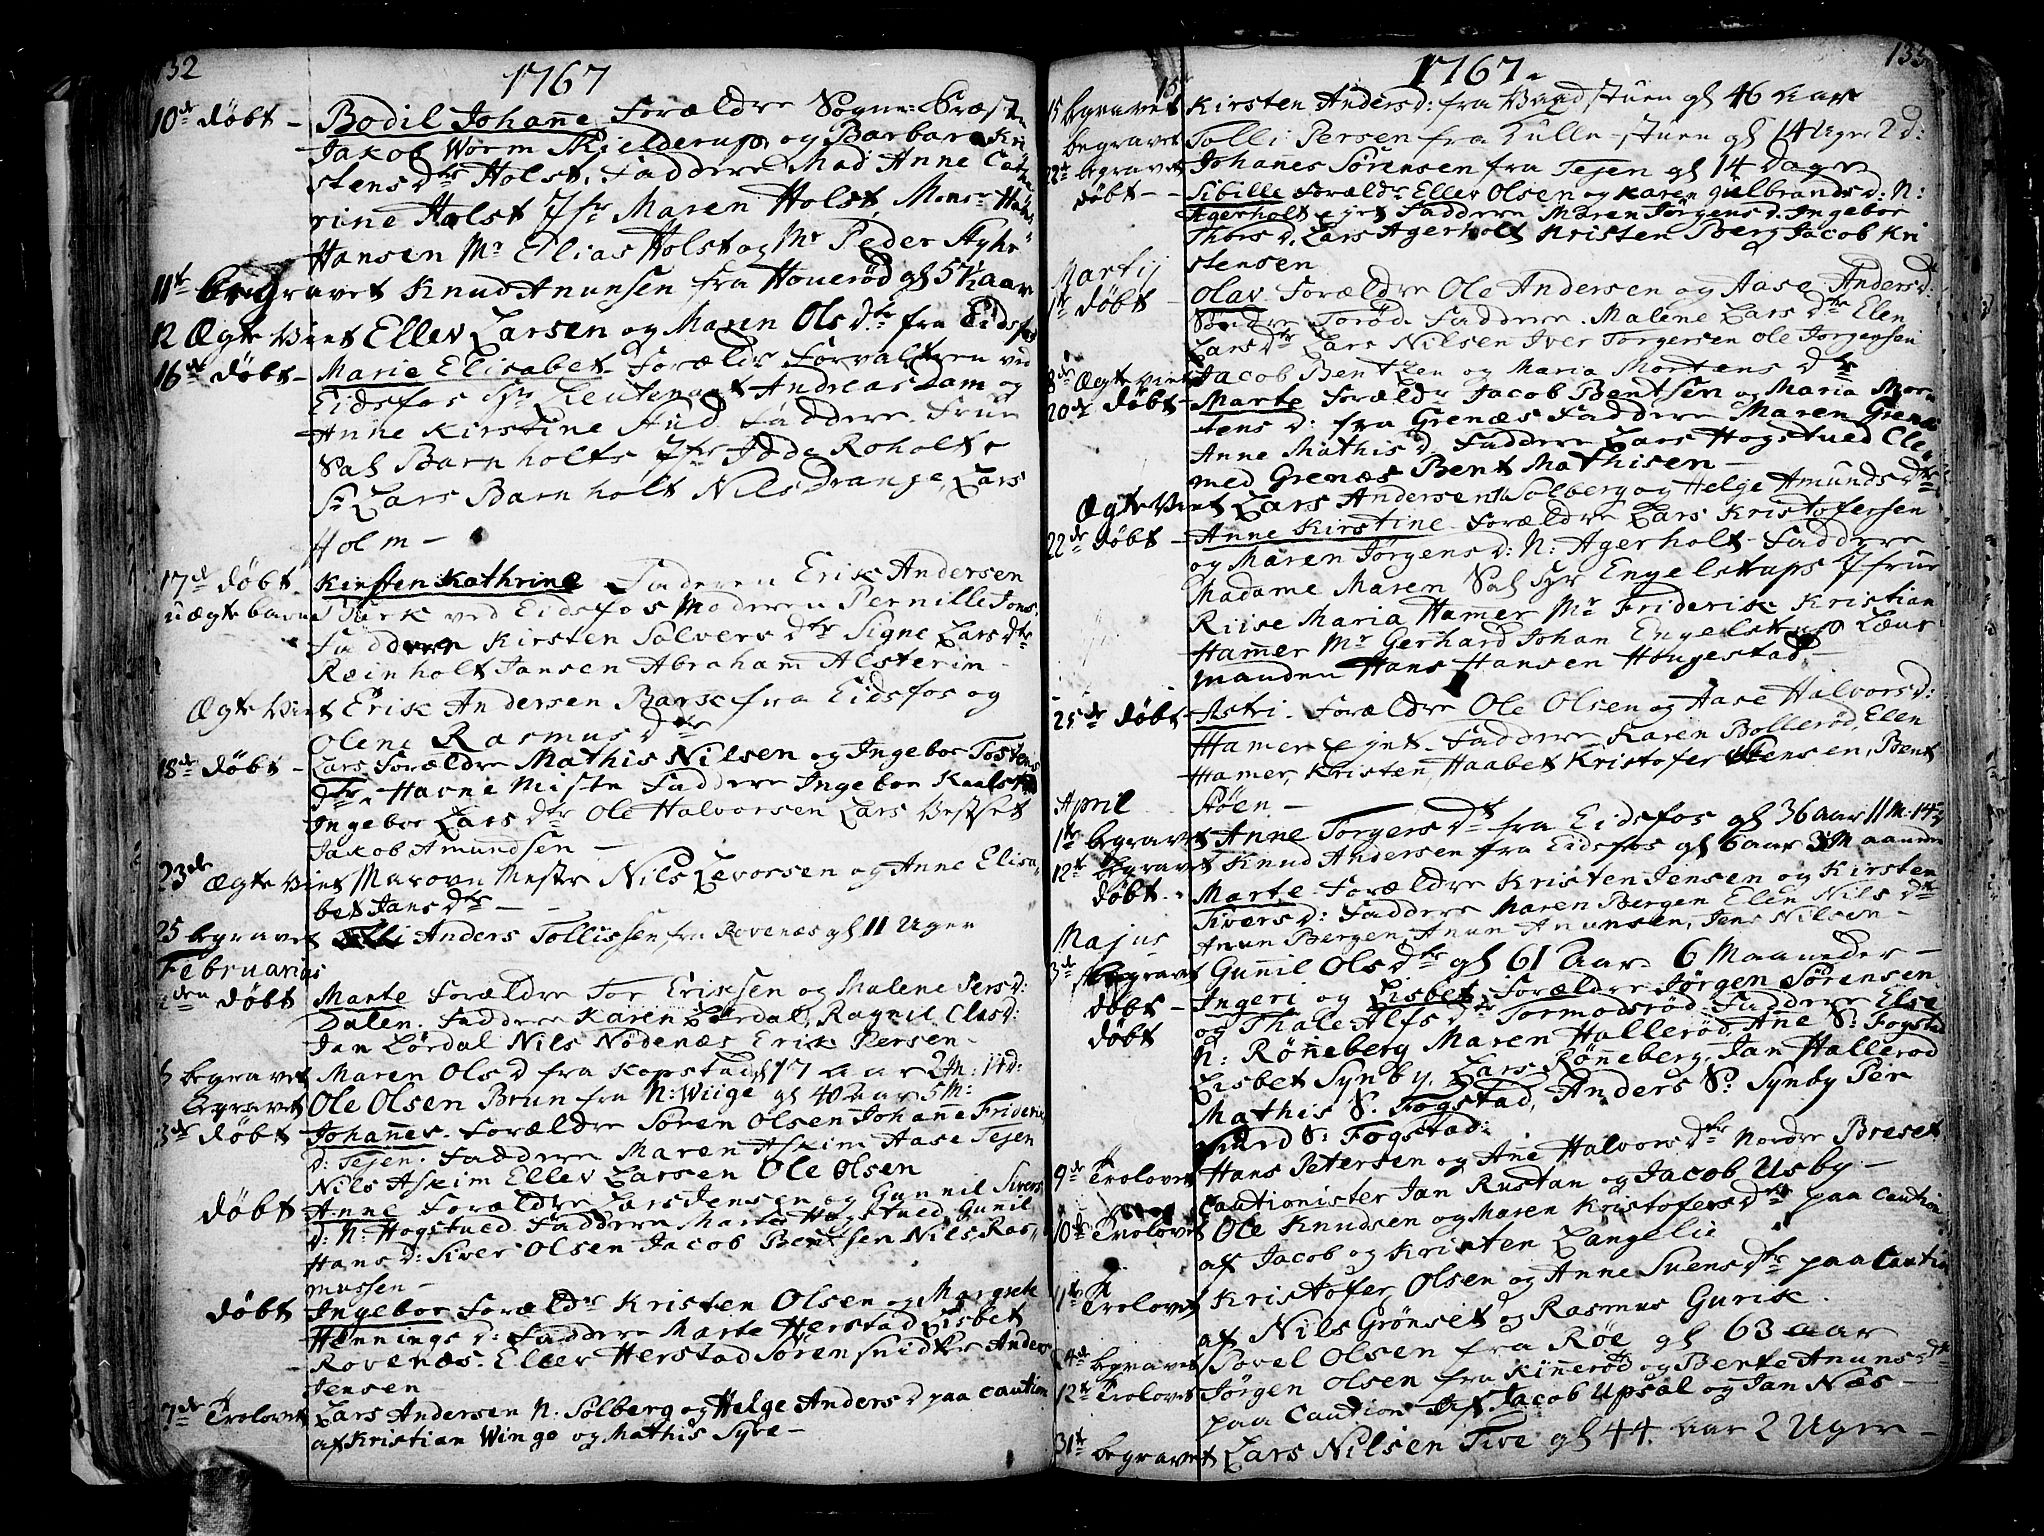 132
1767
10de døbt - Bodil Johanne Forældre Sogne-Præsten
Jakob Worm Skjelderup og Barbara Kri
stens Dtr Holst, Faddere Mad Anne Cath
rine Holst Jfr Maren Holst, Monsr Hans
Hansen Mr Elias Holst og Mr Peder Styhr
11te begravet Knud Anunsen fra Houerød gl 57½ aar
12 Ægte Viet Ellev Larsen og Maren Ols Dtr fra Eidsfos
16de døbt - Marie Elisabet - Forældr Forvalteren ved
Eidsfos Hr Leutenant Andreas Dam og
Anne Kirstine Aud Faddere Frue
Sal Barnholts Jfr Idde Roholt
Sr Lars Barnholt Nils Drange, Lars
Holm -
17de døbt - Kirsten Kathrine Faderen Erik Andersen
uægte barn Turk ved Eidsfos Moderen Pernille Jons
Faddere Kirsten Solvers Dtr Signe Lars Dtr
Reinholt Jansen Abraham Alsterin -
Ægte Viet Erik Andersen Bark fra Eidsfos og
Olene Rasmus Dtr
18de døbt - Lars Forældre Mathis Nilsen og Ingebor Tostens
Dtr Havne Miste Faddere Ingebor Kaalst
Ingebor Lars Dtr Ole Halvorsen Lars Vestset
Jakob Amundsen -
23de Ægte Viet Marovn Mestr Nils Levorsen og Anne Elisa
bet Jans Dtr -
25 begravet Anders Tollissen fra Rovenæs gl 11 Uger
Februarius
2den døbt Marte Forældre Tor Eriksen og Malene Pers D:
Dalen. Faddere Karen Lørdal, Ragnil Clas D:
Jan Lørdal Nils Nødenæs Erik Persen -
begravet Maren Ols D fra Kopstad gl 17 aar 2 M: 14 D:
begravet Ole Olsen Brun fra N: Wiige gl 40 aar 5 M:
3de døbt Johannes. Forældre Søren Olsen Johanne Frideric
D: Tejen. Faddere Maren Askim Aase Tejen
Nils Askim Ellev Larsen Ole Olsen
døbt Anne Forældre Lars Jensen og Gunnil Sivers
D: N: Hogstued Faddere Marte Hogstued, Gunil
Hans D: Siver Olsen Jacob Bentsen Nils Ras
mussen -
døbt Ingebor Forældr Kristen Olsen og Margrete
Hennings D: Faddere Marte Herstad Lisbet
Rovenæs. Ellev Herstad Søren Snidker Anders
Jensen -
7de Trolovet Lars Andersen N: Solberg og Helge Anders D paa caution
af Kristian Winge og Mathis Syve -
133
1767
15 begravet Kirsten Anders D: fra Vandstuen gl 46 aar
begravet Tolli Persen fra Lulle-stuen gl 14 Uger 2 d:
22de begravet Johanes Sørensen fra Tejen gl 14 Dage
døbt - Sibille Forældr Ellev Olsen og Karen Gulbrands D: N:
Agerholt ejet Faddere Maren Jørgens D. Ingebor
Thors D, Lars Agerholt Kristen Berg Jacob Kri
stensen
Martij
1te døbt - Olav Forældre Ole Andersen og Aase Anders D:
Søndre Torød. Faddere. Malene Lars Dtr Elen
Lars Dtr Lars Nilsen Iver Torgersen Ole Jørgensen
8de Ægte Viet Jacob Bentzen og Maria Mortens Dtr
20de døbt - Marte Forældr Jacob Bentsen og Maria Mor
tens D: fra Grenæs Faddere Maren Grenæs
Anne Mathis D, Faddere Lars Hogstued Cle
med Grenæs Bent Mathisen -
Ægte Viet Lars Andersen Solberg og Helge Amunds Dtr
22de døbt - Anne Kirstine Forældre Lars Kristofersen
og Maren Jørgens D: N: Agerholt Faddere
Madame Maren Sal Hr Engelstups Jfrue
Riise Maria Hamer Mr Friderik Kristian
Hamer Mr Gerhard Johan Engelstup Laug
manden Hans Hansen Hougestad
25de døbt - Astri - Forældre Ole Olsen og Aase Halvors D:
Hamer ejet - Faddere Karen Bollerød, Elen
Hamer, Kristen Haabet Kristofer Stensen, Bent
April Støen -
1te begravet Anne Torgers Dt fra Eidsfos gl 36 aar 11 M. 14
12te begravet Knud Andersen fra Eidsfos gl 6 aar 3 Maaneder
døbt. Marte Forældre Kristen Jensen og Kirsten
Sivers D: Faddere Maren Bergen Elen Nils Dtr
Anun Bergen, Anun Anunsen, Jens Nilsen -
Majus
3de begravet Gunnil Ols Dtr gl 61 Aar 6 Maaneder -
døbt - Ingeri og Lisbet, Forældre Jørgen Sørensen
døbt og Thale Alfs Dtr Tormodsrød Faddere Else
N: Røneberg Maren Hallerød, Ane S: Fogstad
Lisbet Synby, Lars Røneberg, Jan Hallerød
Mathis S. Fogstad, Anders S. Synby Per
Fogstad:
9de Trolovet Hans Petersen og Ane Halvors Dtr Nordre Breset
Cautionister Jan Rustan og Jacob Usby -
10de Trolovet Ole Knudsen og Maren Kristofers Dtr paa Caution
af Jacob og Kristen Langelie
Trolovet Kristofer Olsen og Anne Suens Dtr paa Cautio
af Nils Grønset og Rasmus Gurik.
24de begravet Povel Olsen fra Røe gl 63 aar
12te Trolovet Jørgen Olsen fra Kinnerød og Bente Anuns Dtr
paa Caution af Jacob Upsal og Jan Næs -
31te begravet Lars Nilsen Tive gl 44 aar 2 Uger -